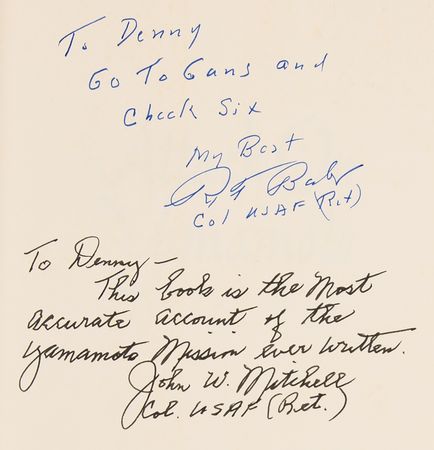 To Denny
Go To Guns and
Check Six
My Best
R F Baker
Col USAF (Ret)
To Denny—
This book is the Most
accurate account of the
Yamamoto Mission ever written.
John W. Mitchell
Col. USAF (Ret.)